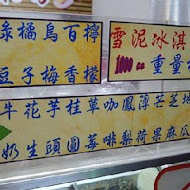 綠豆
橘子
烏梅
百香
檸檬
雪泥冰淇
1000cc 重量
牛奶
花生
芋頭
桂圓
草莓
咖啡
鳳梨
薄荷
芒果
芝麻
地瓜